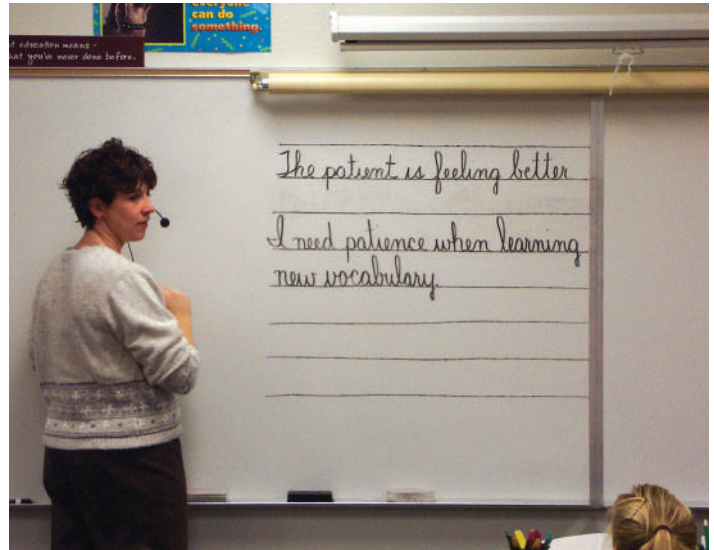 everyone
can do
something.
t education means -
at you've never done before.
The patient is feeling better
I need patience when learning
new vocabulary.